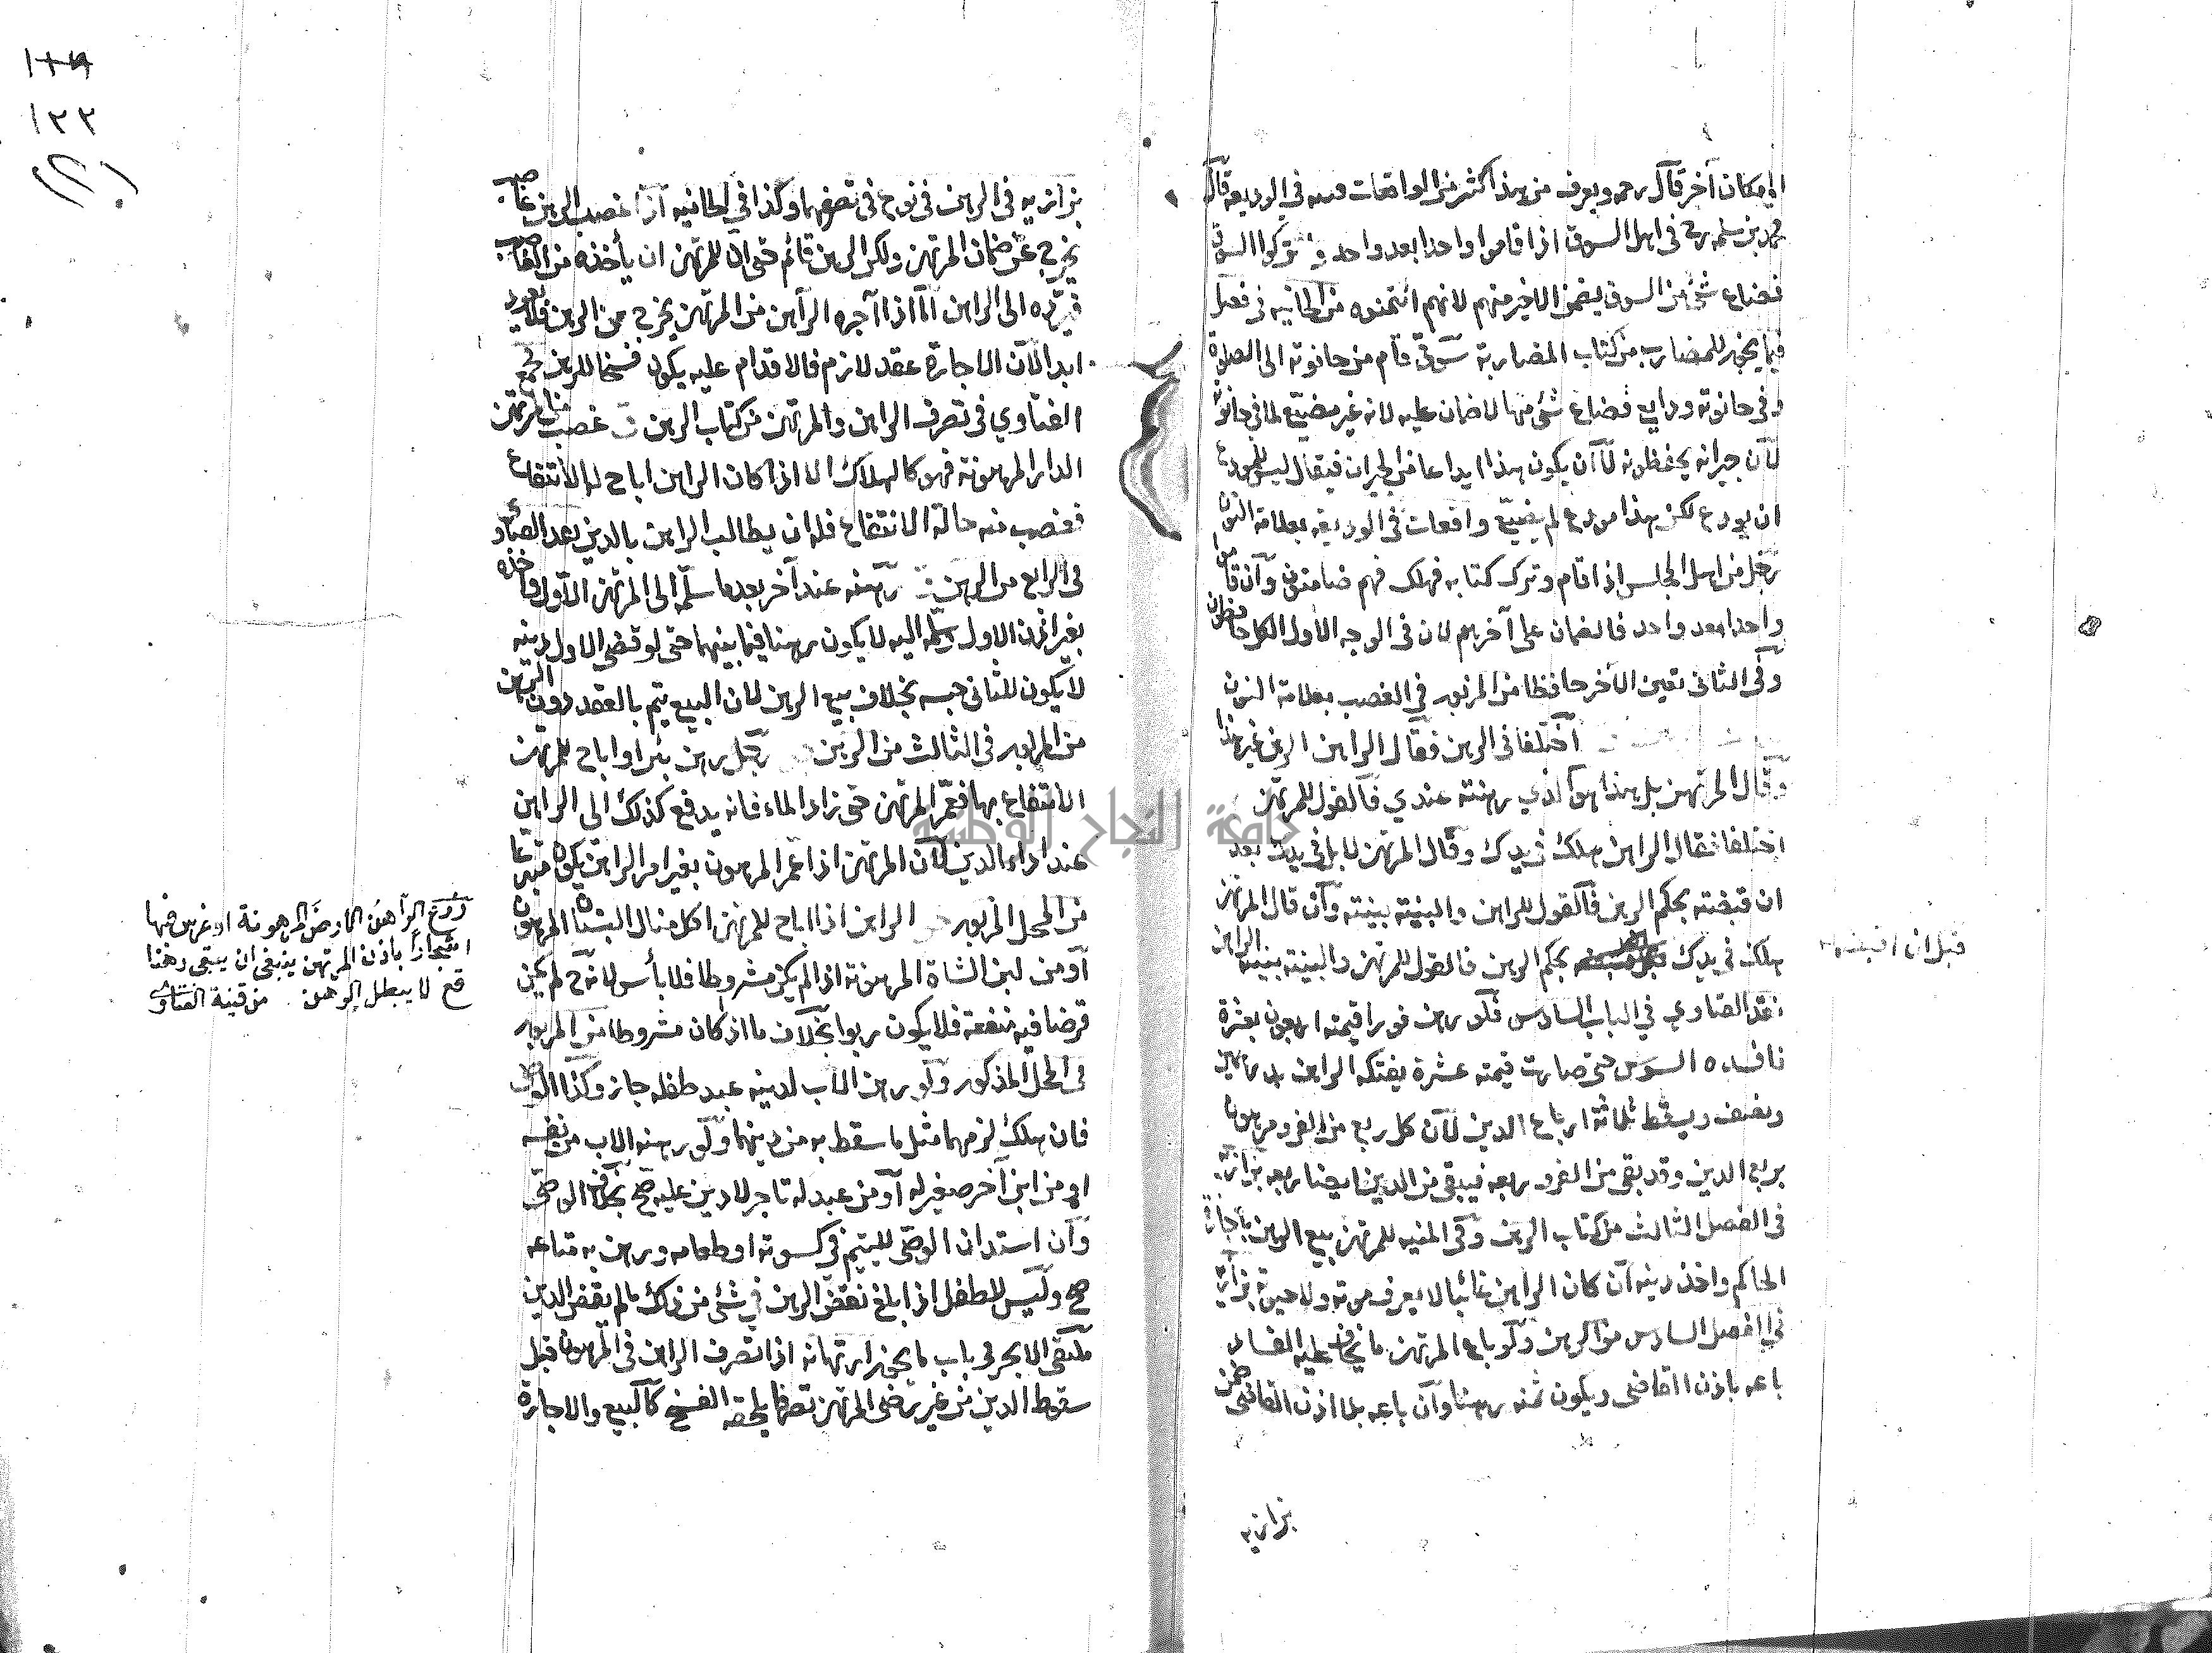 الى مكان آخر قال رحمه ويعرف من هذا كثير من الواقعات في الوديعة قال
محمد بن سلمه رح في اهل السوق اذا قاموا واحدا بعد واحد وتركوا السوق
فضاع شئ من السوق يضمن الاخير منهم لانهم ائتمنوه من الخانيه في فصل
فيما يجوز للمضارب من كتاب المضاربة سوقى قام من حانوته الى الصلوة
وفى حانوته ودايع فضاع شئ منها لا ضمان عليه لانه غير مضيّع لما في حانوته
لآن جيرانه يحفظونه لا آن يكون هذا ايداعا من الجيران فيقال ليس للمودع
ان يودع لكن هذا مودع لم يضيّع واقعات في الوديعه بعلامة النون
رجل من اهل المجلس اذا قام وترك كتابه فهلك فهم ضامنون وآن قاموا
واحدا بعد واحد فالضمان على آخرهم لان في الوجه الاول الكل حافظون
وفى الثانى تعين الآخر حافظا من المزبور في الغصب بعلامة النون
آختلفا في الرهن فقال الراهن الرهن غير هذا
وقال المرتهن بل هذا هو الذي رهنته عندي فالقول للمرتهن
اختلفا فقال الراهن هلك في يدك وقال المرتهن لا بل في يدك بعد
ان قبضته بحكم الرهن فالقول للراهن والبينة بينته وآن قال المرتهن
هلك في يدك بحكم الرهن فالقول للمرتهن والبينة بينة الراهن
قبل ان اقبضه
نقد الفتاوي في الباب السادس فلو رهن فروا قيمته اربعون بعشرة
فافسده السوس حتى صارت قيمته عشرة يفتكه الراهن بدرهمين
ونصف ويسقط ثلاثة ارباع الدين لآن كل ربع من الفرو مرهون
بربع الدين وقد بقى من الفرو ربعه فيبقى من الدين ايضا ربعه بزازية
في الفصل الثالث من كتاب الرهن وفى المنيه للمرتهن بيع الرهن باجازة
الحاكم واخذ دينه آن كان الراهن غائبا لا يعرف موته ولا حيوته بزازية
في الفصل السادس من الرهن ولو باع المرتهن ما يخاف عليه الفساد
باعه باذن القاضى ويكون ثمنه رهنا وآن باعه بلا اذن القاضى ضمن
بزازيه
١٠٩
١٢٢
بزازيه في الرهن في نوع في تصرفهما وكذا في الخانيه آذا غصب الرهن غاصب
يخرج عن ضمان المرتهن ولكن الرهن قائم حتى ان للمرتهن ان يأخذه من الغاصب
فيردّه الى الراهن آلا اذا آجره الرآهن من المرتهن يخرج من الرهن فلا يعود
ابدا لآن الاجارة عقد لازم فالاقدام عليه يكون فسخا للرهن مجمع
الفتاوي في تصرف الراهن والمرتهن من كتاب الرهن غصب من المرتهن
الدار المرهونة فهو كالهلاك الا اذا كان الراهن اباح له الانتفاع
فغصب منه حالة الانتفاع فله ان يطالب الراهن بالدين نقد الفتاوي
في الرابع من الرهن رهنه عند آخر بعدما سلّمه الى المرتهن الاول واخذه
بغير اذن الاول وسلّمه اليه لا يكون رهنا فيما بينهما حتى لو قضى الاول دينه
لا يكون للثانى حبسه بخلاف بيع الرهن لان البيع يتم بالعقد دون الرهن
من المزبور في الثالث من الرهن رجل رهن بئرا واباح للمرتهن
الانتفاع بها فعمّر المرتهن حتى زاد الماء فانه يدفع كذلك الى الراهن
عند اداء الدين لآن المرتهن اذا عمّر المرهون بغير امر الراهن يكون متبرعا
من المحل المزبور الراهن اذا اباح للمرتهن اكل منال البستان المرهون
آو من لبن الشاة المرهونة اذا لم يكن مشروطا فلا بأس لانه ح لم يكن
قرضا فيه منفعة فلا يكون ربوا بخلاف ما اذا كان مشروطا من المزبور
في المحل المذكور ولو رهن الاب لدينه عبد طفله جاز وكذا الوصى
فان هلك لزمهما مثل ما سقط به من دينهما ولو رهنه الاب من نفسه
او من ابن آخر صغير له آو من عبد له تاجر لا دين عليه صح بخلاف الوصى
وآن استدان الوصى لليتيم في كسوته او طعامه ورهن به متاعه
صح وليس للطفل اذا بلغ نقض الرهن في شئ من ذلك مالم يقض الدين
ملتقى الابحر في باب ما يجوز ارتهانه اذا تصرف الراهن في المرهون قبل
سقوط الدين من غير رضى المرتهن تصرفا يلحقه الفسخ كالبيع والاجارة
زرع الرآهن الارض المرهونة او غرس فيها
اشجارا باذن المرتهن ينبغى ان يبقى رهنا
قع لا يبطل الرهن من قنية الفتاوى
جامعة النجاح الوطنية